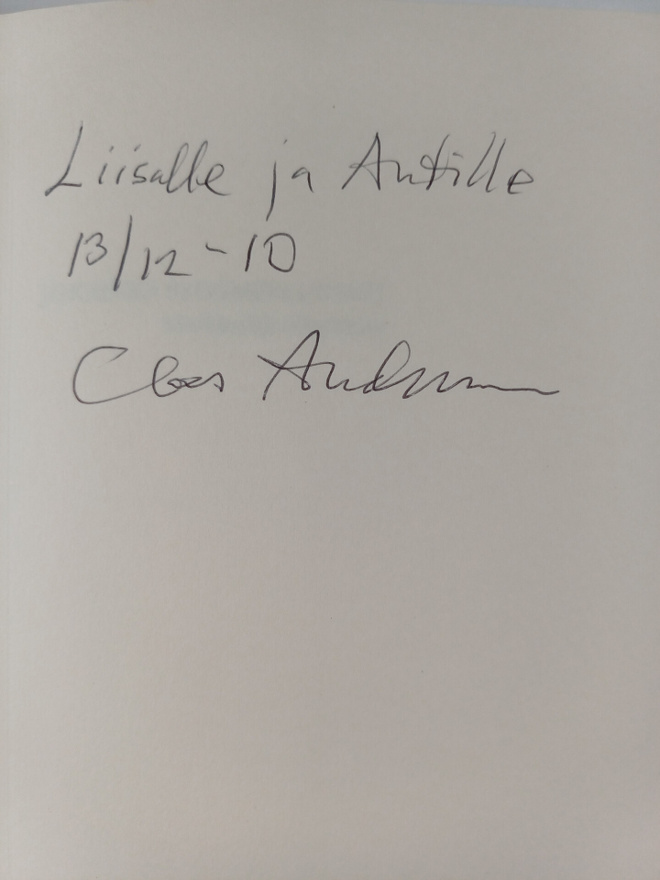 Liisalle ja Antille
13/12-10
Claes Andersson